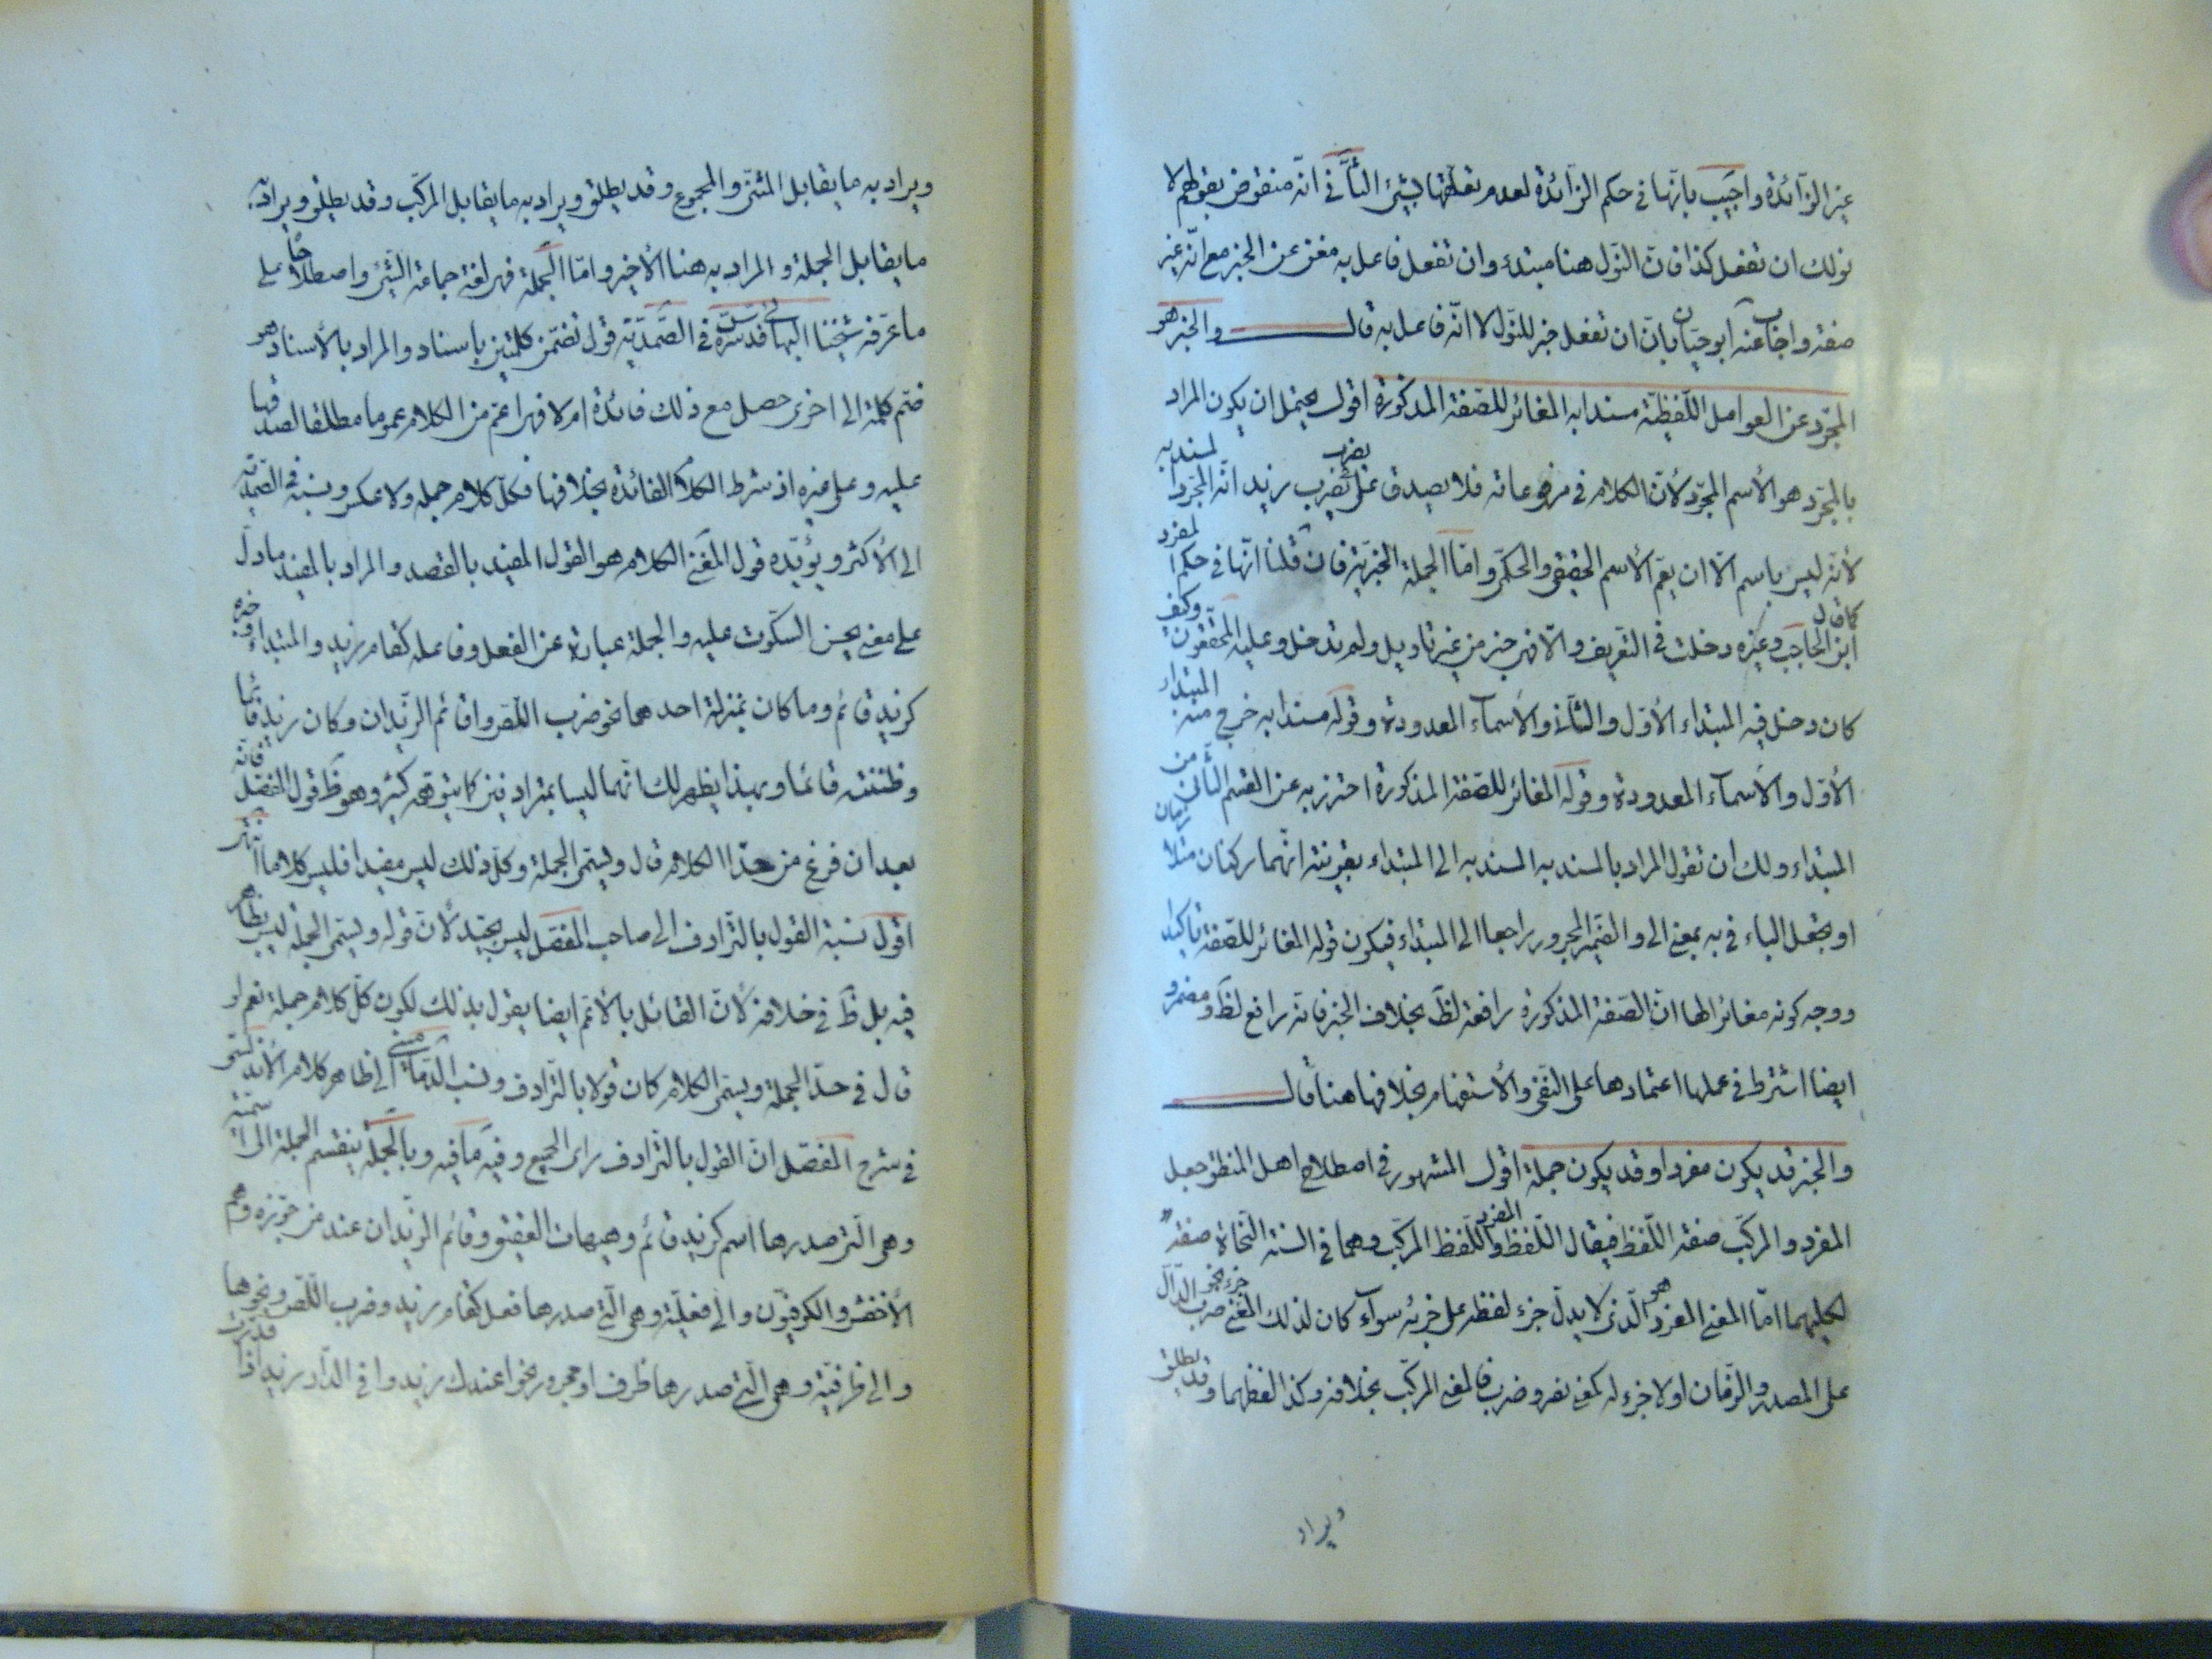 غير الزّائدة واجيب بانّها فى حكم الزّائدة لعدم تعلّقها بشئ الثّانى انّه منقوض بقولهم لا
نولك ان تفعل كذا فانّ النّول هنا مبتدء وان تفعل فاعل به مغن عن الخبر مع انّه غير
صفة واجاب عنه ابو حيّان بانّ ان تفعل خبر للنّول لا انّه فاعل به قال والخبر هو
المجرّد عن العوامل اللّفظيّة مسندا به المغائر للصّفة المذكورة اقول يحتمل ان يكون المراد
بالمجرّد هو الأسم المجرّد لأنّ الكلام فى مرفوعاته فلا يصدق على يضرب فى يضرب زيد انّه المجرّد المسند به
لأنّه ليس باسم الّا ان يعمّ الأسم الحقيقى والحكمى وامّا الجملة الخبريّة فان قلنا انّها فى حكم المفرد
كما قال ابن الحاجب وغيره دخلت فى التّعريف والّا فهى خبر من غير تاويل ولم تدخل وعليه المحقّقون وكيف
كان دخل فيه المبتداء الأوّل والثّانى والأسماء المعدودة وقوله مسندا به خرج منه المبتداء
الأوّل والأسماء المعدودة وقوله المغائر للصّفة المذكورة احترز به عن القسم الثّانى من
المبتداء ولك ان تقول المراد بالمسند به المسند به الى المبتداء بقرينة انّهما ركنان متلازمان
او يجعل الباء فى به بمعنى الى والضّمير المجرور راجعا الى المبتداء فيكون قوله المغائر للصّفة تاكيدا
ووجه كونه مغائرا لها انّ الصّفة المذكورة رافعة لظَ بخلاف الخبر فانّه رافع لظَ ومضمر و
ايضا اشترط فى عملها اعتمادها على النّفى والأستفهام بخلافها هنا قال
والخبر قد يكون مفردا وقد يكون جملة اقول المشهور فى اصطلاح اهل المنطق جعل
المفرد والمركّب صفة اللّفظ فيقال اللّفظ المفرد واللّفظ المركّب وهما فى السنة النّحاة صفة
لكليهما امّا المعنى المفرد هو الّذى لا يدلّ جزء لفظه على جزئه سواء كان لذلك المعنى جزء نحو ضرب الدّال
على المصدر والزّمان او لا جزء له كمعنى نفر وضرب فالمعنى المركّب بخلافه وكذا لفظهما وقد يطلق
ويراد
ويراد به ما يقابل المثنّى والمجموع وقد يطلق ويراد به ما يقابل المركّب وقد يطلق ويراد به
ما يقابل الجملة والمراد به هنا الأخير وامّا الجملة فهى لغة جماعة الشّئ واصطلاحا على
ما عرّفه شيخنا البهائى قدّس سرّه فى الصّمديّة قول تضمّن كلمتين باسناد والمراد بالأسناد هو
ضمّ كلمة الى اخرى حصل مع ذلك فائدة ام لا فهى اعمّ من الكلام عموما مطلقا لصدقها
عليه وعلى غيره اذ شرط الكلام الفائدة بخلافها فكلّ كلام جملة ولا عكس ونسبه فى الصّمديّة
الى الأكثر ويؤيّده قول المغنى الكلام هو القول المفيد بالقصد والمراد بالمفيد ما دلّ
على معنى يحسن السّكوت عليه والجملة عبارة عن الفعل وفاعله كقام زيد والمبتداء وخبره
كزيد قائم وما كان بمنزلة احدهما نحو ضرب اللّص واقائم الزّيدان وكان زيد قائما
وظننته قائما وبهذا يظهر لك انّهما ليسا بمترادفين كما يتوهّمه كثير وهو ظَ قول المفصّل فانّه
بعد ان فرغ من حدّ الكلام قال ويسمّى الجملة وكلّ ذلك ليس مفيدا فليس كلاما انتهى
اقول نسبة القول بالتّرادف الى صاحب المفصّل ليس بجيّد لأنّ قوله ويسمّى الجملة ليس بظاهر
فيه بل ظَ فى خلافه لأنّ القائل بالأعمّ ايضا يقول بذلك لكون كلّ كلام جملة نعم لو
قال فى حدّ الجملة ويسمّى الكلام كان قولا بالتّرادف ونسب الدّمامينى الى ظاهر كلام الأندلسى
فى شرح المفصّل انّ القول بالتّرادف راى الجميع وفيه ما فيه وبالجملة ينقسم الجملة الى اسميّة
وهى الّتى صدرها اسم كزيد قائم وهيهات العقيق وقائم الزّيدان عند من جوّزه وهم
الأخفش والكوفيّون والى فعليّة وهى الّتى صدرها فعل كقام زيد وضرب اللّص ونحوها
والى ظرفيّة وهى الّتى صدرها ظرف او مجرور نحو اعندك زيد وافى الدّار زيد اذا قدّرت